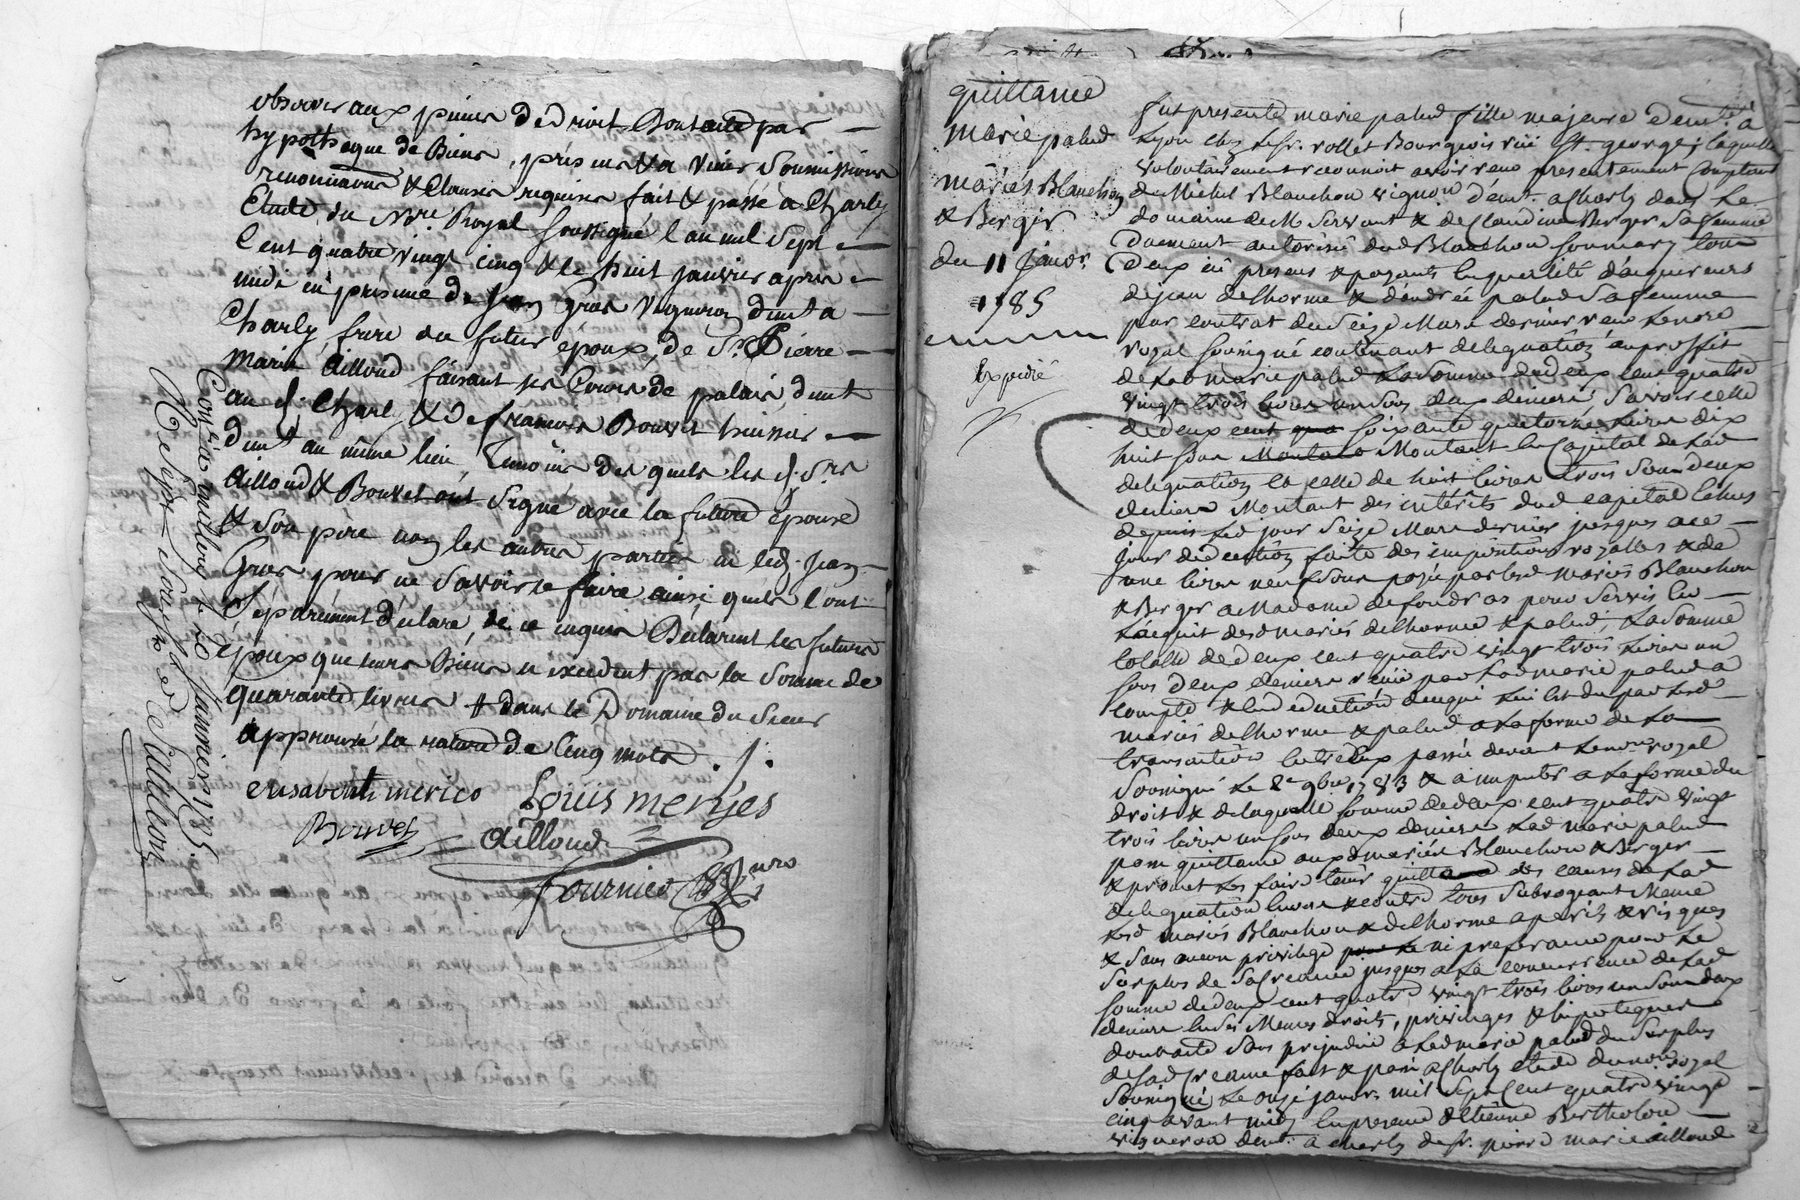 observer aux peines de droit Dont acte par
hypotheque de Biens, presens & a venir Soumissions
renonciations & Clauses requises fait & passé a Charly
Etude du Nre. Royal Soussigné l'an mil Sept
Cent quatre vingt cinq & le huit janvier apres
midi en presence de Jean Gras Vigneron demt a
Charly, frere du futur epoux, de Sr. Pierre
Marie Ailloud faisant ses Cours de palais, demt
au d. Charly & de francois Bouvet huissier
demt au même lieu, Temoins des quels les d. Srs
Ailloud & Bouvet ont Signé avec la future épouse
& Son pere non les autres parties ni led. Jean
Gras pour ne Savoir le faire ainsi quils l'ont
Séparément déclaré, de ce enquis Declarent les futurs
époux que leurs Biens n'excedent pas la Somme de
quarante livres # dans le Domaine du Sieur
approuvé la rature de Cinq mots ./.
elisabeth merico Louis merges
Bouvet Ailloud
fournier
Conlé à millery le janvier 1785.
Reçu
quittance
Marie palud
mariés Blanchon
& Berger
du 11 janvr.
1785
Expedié
fut presente marie palud fille majeure demte. à
Lyon chez le Sr. rollet Bourgeois rüe St. george, laquelle
volontairement reconnoit avoir reçu presentement Comptant
de Michel Blanchon vigron demt. a Charly dans le
domaine de M. Servant & de Claudine Berger Sa femme
Duement autorisée dud Blanchon Son mary tous
deux icy presens & payants en quallité d'aquereurs
de jean delhorme & d'andrée palud Sa femme
par contrat du Seize Mars dernier reçu le nore
royal Soussigné contenant delegation au proffit
de lad marie palud La Somme de deux cent quatre
vingt trois livres un Sou deux deniers Savoir celle
de deux cent qua Soixante quatorze livres dix
huit Sous Montant Montant du Capital de lad
delegation et celle de huit livres trois Sous deux
deniers Montant des intérêts dud capital échus
depuis led jour Seize Mars dernier jusques a ce
jour deduction faite des impositions royalles & de
une livre neuf Sous payée par lesd mariés Blanchon
& Berger a Madame de foudras pour Servis en
L'acquit desd mariés delhorme & palud, La Somme
totalle de deux cent quatre vingt trois livres un
Sous deux deniers reçüe par lad marie palud a
compte & en deduction de ce qui lui est du par lesd
mariés delhorme & palud a la forme de la
transaction entreux passée devant le nore royal
Soussigné le 2e 9bre 1783 & a imputer a la forme du
droit & de laquelle Somme de deux cent quatre vingt
trois livres un Sou deux deniers lad marie palud
passe quittance auxd mariés Blanchon & Berger
& promet les faire tenir quittes des causes de lad
delegation envers & contre tous Subrogeant Meme
lesd mariés Blanchon & delhorme a perils & risques
& Sans aucun privilege pour le ni preferance pour le
Surplus de Sa Creance jusques a la concurrence de lad
Somme de deux cent quatre vingt trois livres un Sou deux
deniers en Ses Memes droits, privileges & hipoteques
dont acte Sans prejudice a lad marie palud du Surplus
de Sad Creance fait & passé a Charly étude du nore royal
Soussigné le onze janvr. mil Sept Cent quatre vingt
cinq avant midy en presence d'Etienne Bertholon
vigneron demt. a charly de Sr. pierre marie aillaud